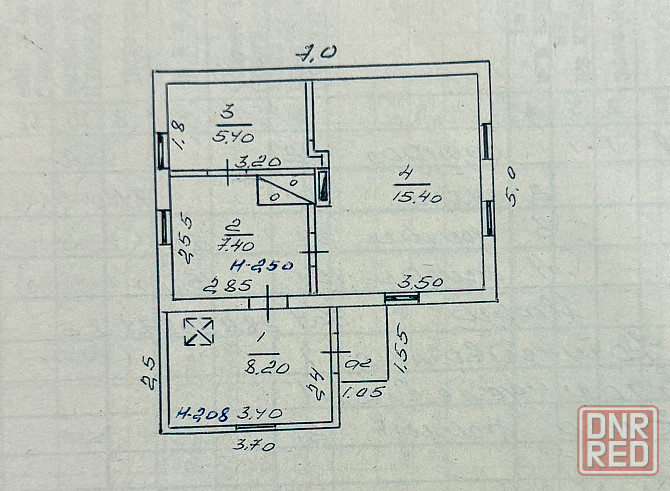 7,0
3
5.40
1.8
3.20
4
15.40
5.0
2
7.40
2.55
H-250
2.85
3.50
1
8.20
2.5
2.4
a2
1.55
1.05
H-208
3.40
3.70
DNR
RED